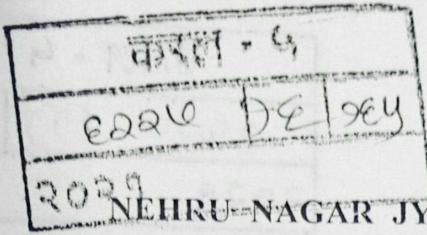 करल - ५
६२२७ १६५
२०२१
NEHRU-NAGAR JY